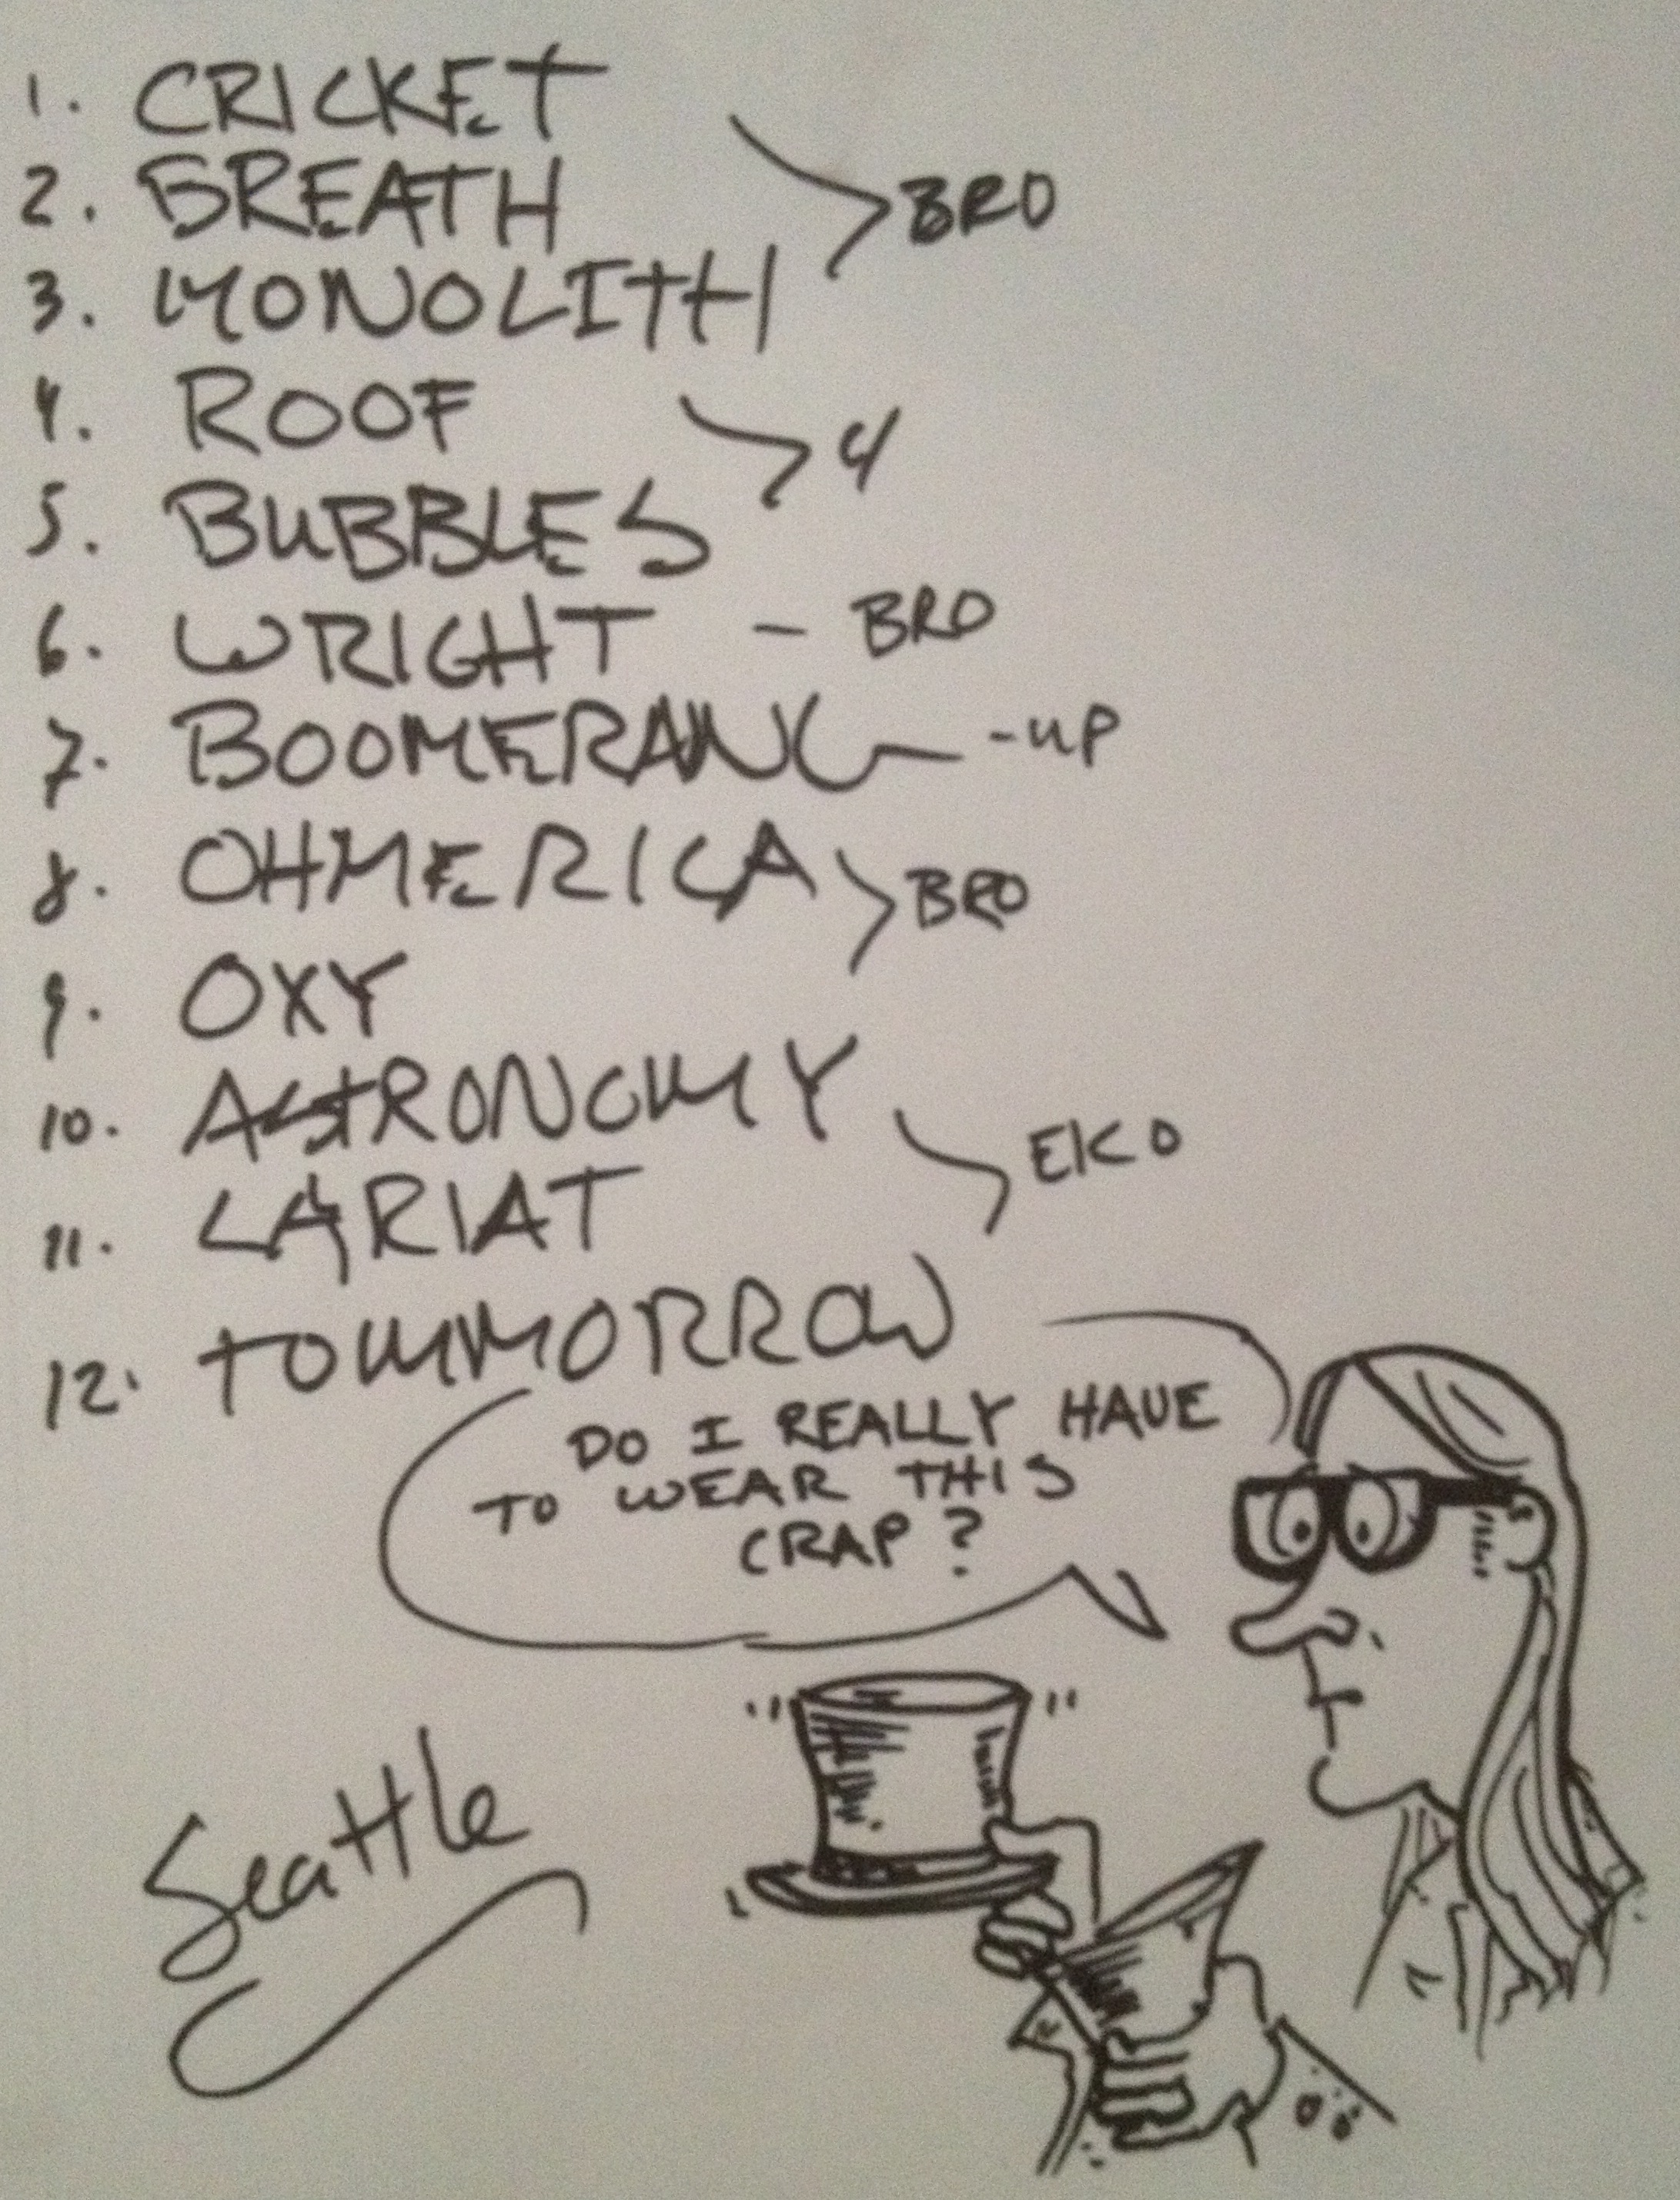 1. CRICKET
2. BREATH
BRO
3. MONOLITH
4. ROOF
4
5. BUBBLES
6. WRIGHT - BRO
7. BOOMERANG -UP
8. OHMERICA
BRO
9. OXY
10. ASTRONOMY
EKO
11. LARIAT
12. TOMMORROW
DO I REALLY HAVE
TO WEAR THIS
CRAP?
Seattle